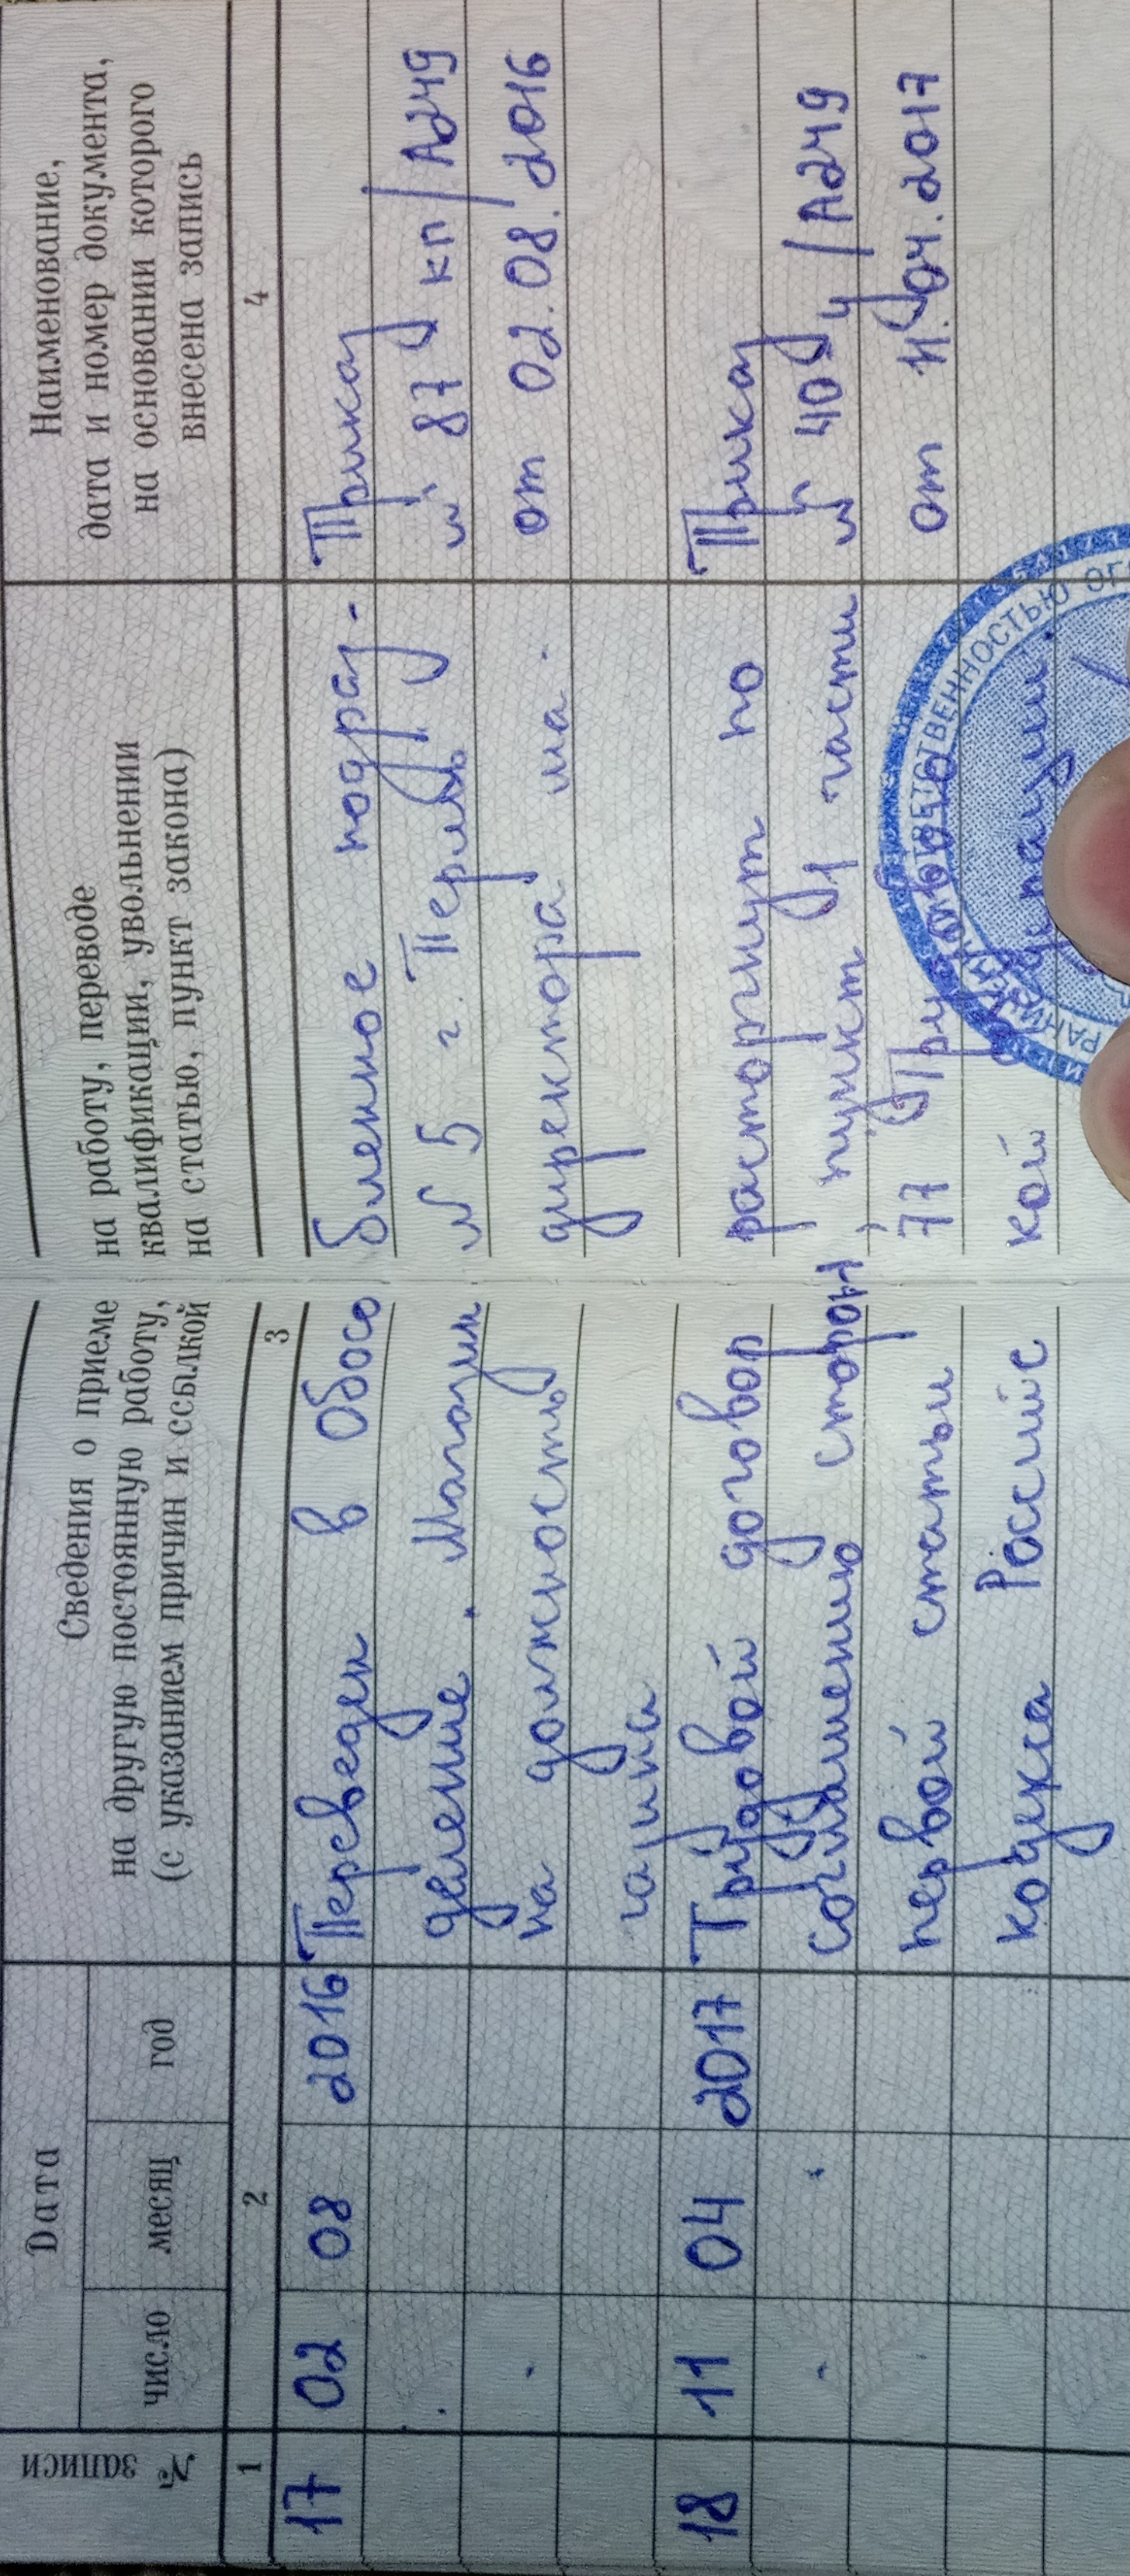 № записи
Дата
число месяц год
Сведения о приеме на работу, переводе
на другую постоянную работу, квалификации, увольнении
(с указанием причин и ссылкой на статью, пункт закона)
Наименование,
дата и номер документа,
на основании которого
внесена запись
1 2 3 4
17 02 08 2016 Переведен в обособленное подраз- Приказ
деление. Магазин № 5 г. Пермь № 87 кп/А249
на должность директора ма- от 02.08.2016
газина
18 11 04 2017 Трудовой договор расторгнут по Приказ
соглашению сторон, пункт 1 части № 40 у/А249
первой статьи 77 Трудового от 11.04.2017
кодекса Российской Федерации.
ОТВЕТСТВЕННОСТЬЮ